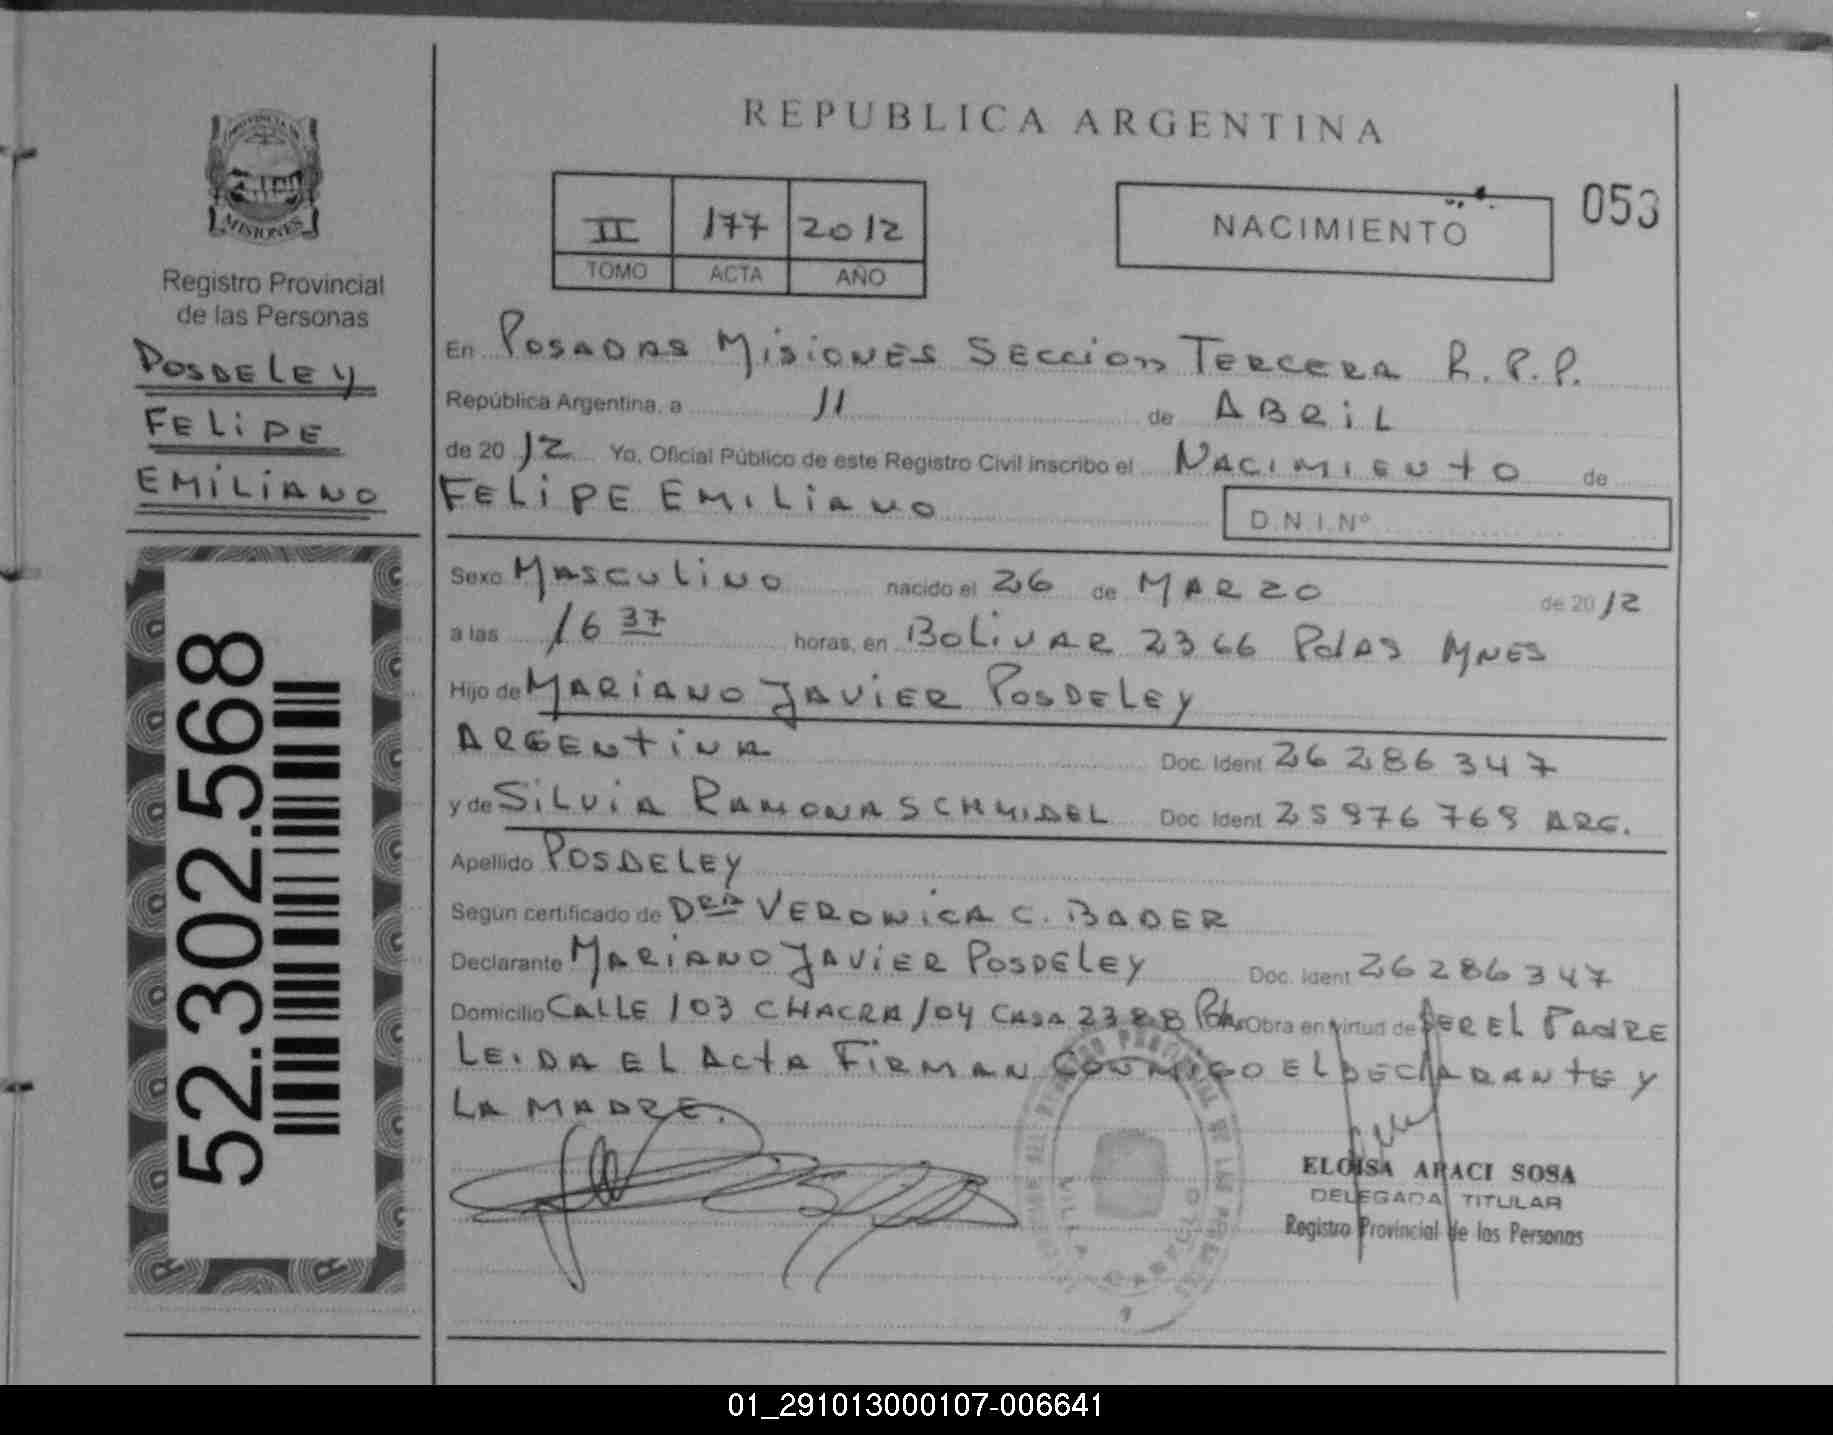 REPUBLICA ARGENTINA
PROVINCIA DE
MISIONES
Registro Provincial
de las Personas
POSDELEY
FELIPE
EMILIANO
52.302.568
II 177 2012
TOMO ACTA AÑO
NACIMIENTO
053
En POSADAS MISIONES SECCION TERCERA R.P.P.
República Argentina, a 11 de ABRIL
de 2012 Yo, Oficial Público de este Registro Civil inscribo el NACIMIENTO de
FELIPE EMILIANO D.N.I.Nº
Sexo MASCULINO nacido el 26 de MARZO de 2012
a las 16 37 horas, en BOLIVAR 2366 Pdas MNES
Hijo de MARIANO JAVIER POSDELEY
ARGENTINA Doc. Ident 26 286 347
y de SILVIA RAMONA SCHMIDEL Doc. Ident ARG.
Apellido POSDELEY
Según certificado de DRA VERONICA C. BADER
Declarante MARIANO JAVIER POSDELEY Doc. Ident 26 286 347
Domicilio CALLE 103 CHACRA 104 CASA 2388 Pdas Obra en virtud de SER EL PADRE
LEIDA EL ACTA FIRMAN CONMIGO EL DECLARANTE Y
LA MADRE.
ELOISA ARACI SOSA
DELEGADA TITULAR
Registro Provincial de las Personas
01_291013000107-006641